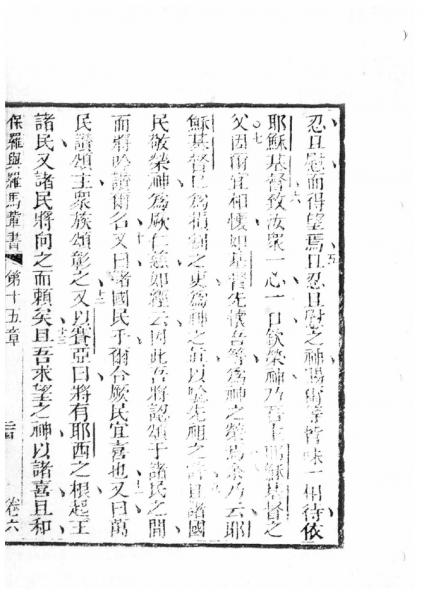 忍且慰而得望焉五且忍且慰之神賜爾等皆味一相待依
耶穌基督六致汝眾一心一口欽榮神乃吾主耶穌基督之
父七固爾宜相懷如基督先懷吾等為神之榮焉八余乃云耶
穌基督已為損割之吏為神之 以 先祖之 九且諸國
民敬榮神為厥仁慈如經云因此吾將認頌于諸民之間
而將吟讚爾名十又曰諸國民乎爾合厥民宜喜也十一又曰萬
民讚頌主眾族頌彰之十二又以賽亞曰將有耶西之根起王
諸民又諸民將向之而賴矣十三且吾求望之神以諸喜且和
保羅與羅馬輩書 第十五章 卷六